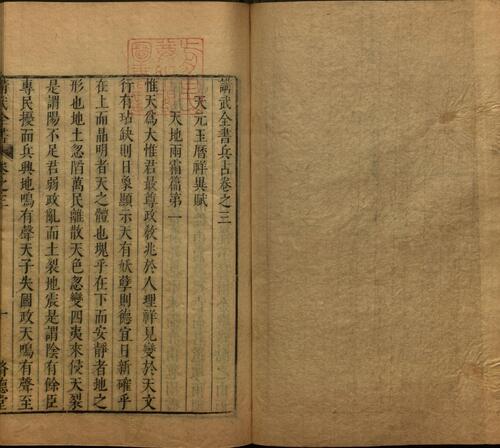 講武全書兵占卷之三
天元玉曆祥異賦
天地雨霜篇第一
惟天為大惟君最尊政教兆於人理祥見變於天文
行有玷缺則日象顯示天有妖孽則德宜日新確乎
在上而晶明者天之體也塊乎在下而安靜者地之
形也地土忽陷萬民離散天色忽變四夷來侵天裂
是謂陽不足君弱政亂而土裂地震是謂陰有餘臣
專民擾而兵興地鳴有聲天子失國政天鳴有聲至
講武全書
卷之三
一